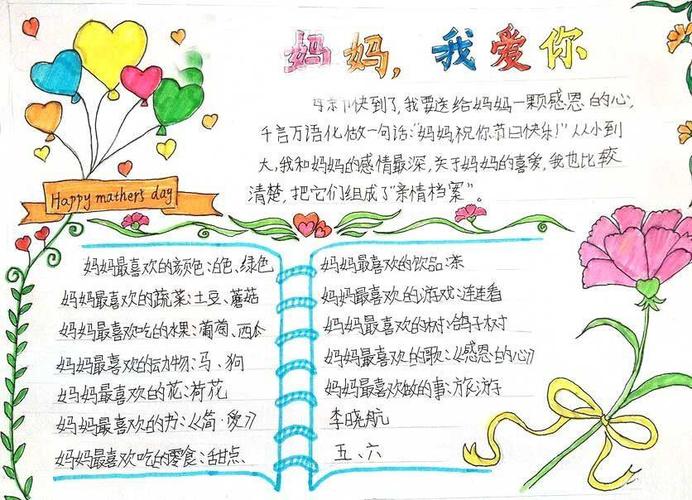 妈妈，我爱你
母亲节快到了，我要送给妈妈一颗感恩的心，
千言万语化做一句话："妈妈祝你节日快乐！"从小到
大，我和妈妈的感情最深，关于妈妈的喜爱，我也比较
清楚，把它们组成了"亲情档案"。
Happy mather's day
妈妈最喜欢的颜色：白色、绿色
妈妈最喜欢的蔬菜：土豆、蘑菇
妈妈最喜欢吃的水果：葡萄、西瓜
妈妈最喜欢的动物：马、狗
妈妈最喜欢的花：荷花
妈妈最喜欢的书：《简·爱》
妈妈最喜欢吃的零食：甜点、
妈妈最喜欢的饮品：茶
妈妈最喜欢的游戏：连连看
妈妈最喜欢的树：鸽子树
妈妈最喜欢的歌：《感恩的心》
妈妈最喜欢做的事：旅游
李晓航
五、六